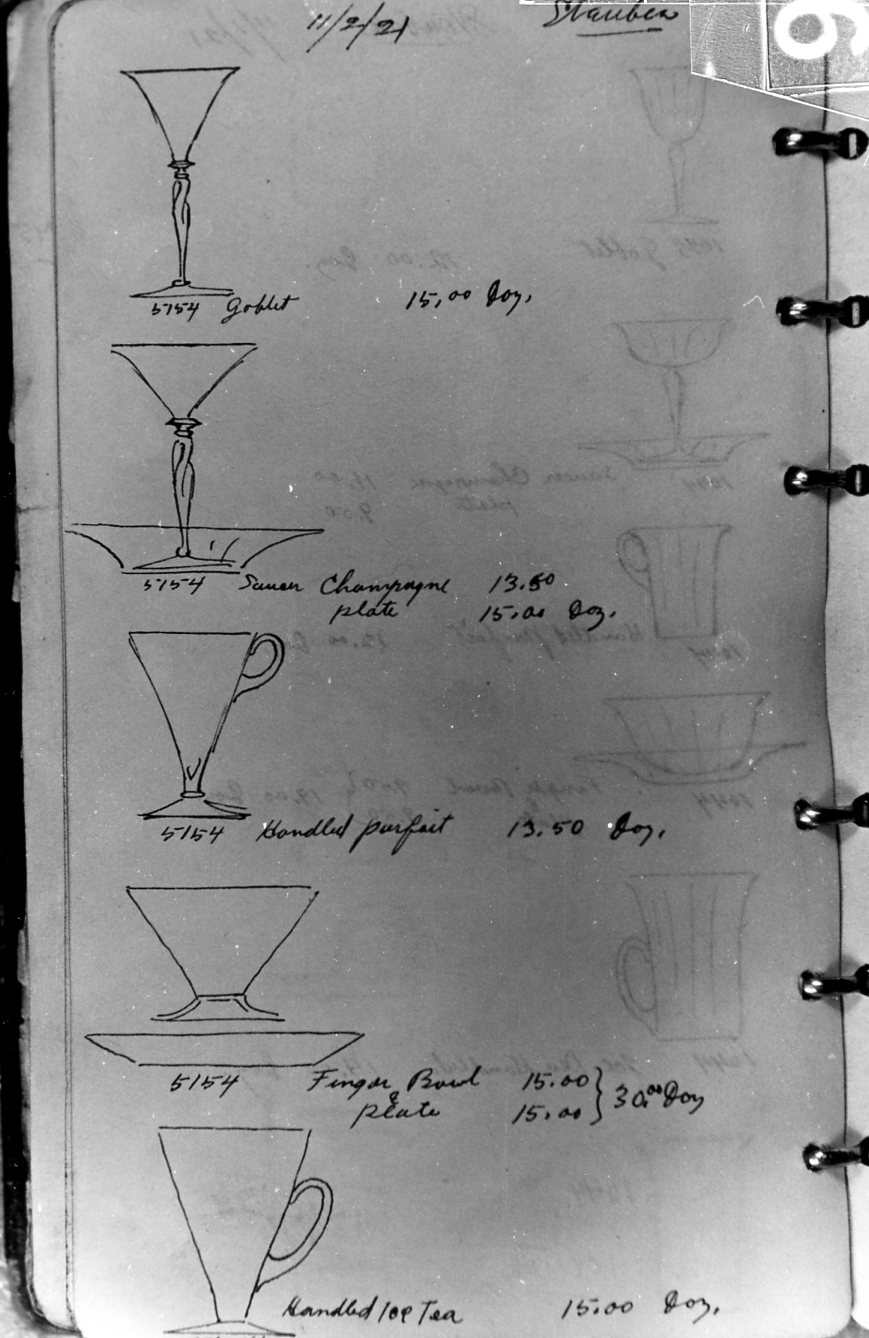 11/2/21 Steuben
6
5154 Goblet 15,00 Doz.
5154 Saucer Champagne 13.50
plate 15,00 Doz.
5154 Handled parfait 13.50 Doz.
5154 Finger Bowl 15.00 } 30.00 Doz
& plate 15,00
Handled Ice Tea 15.00 Doz.